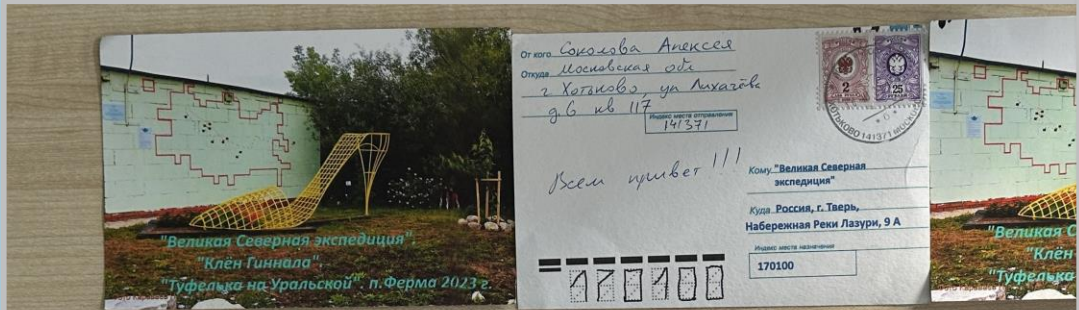 "Великая Северная экспедиция".
"Клён Гиннала".
"Туфелька на Уральской". п.Ферма 2023 г.
От кого Соколова Алексея
Откуда Московская обл
г. Хотьково, ул Лихачёва
д.6 кв 117
Индекс места отправления
141371
Всем привет!!!
2
25
ХОТЬКОВО 141371 МОСКО
Кому "Великая Северная
экспедиция"
Куда Россия, г. Тверь,
Набережная Реки Лазури, 9 А
Индекс места назначения
170100
170100
"Великая С
"Клён
"Туфелька